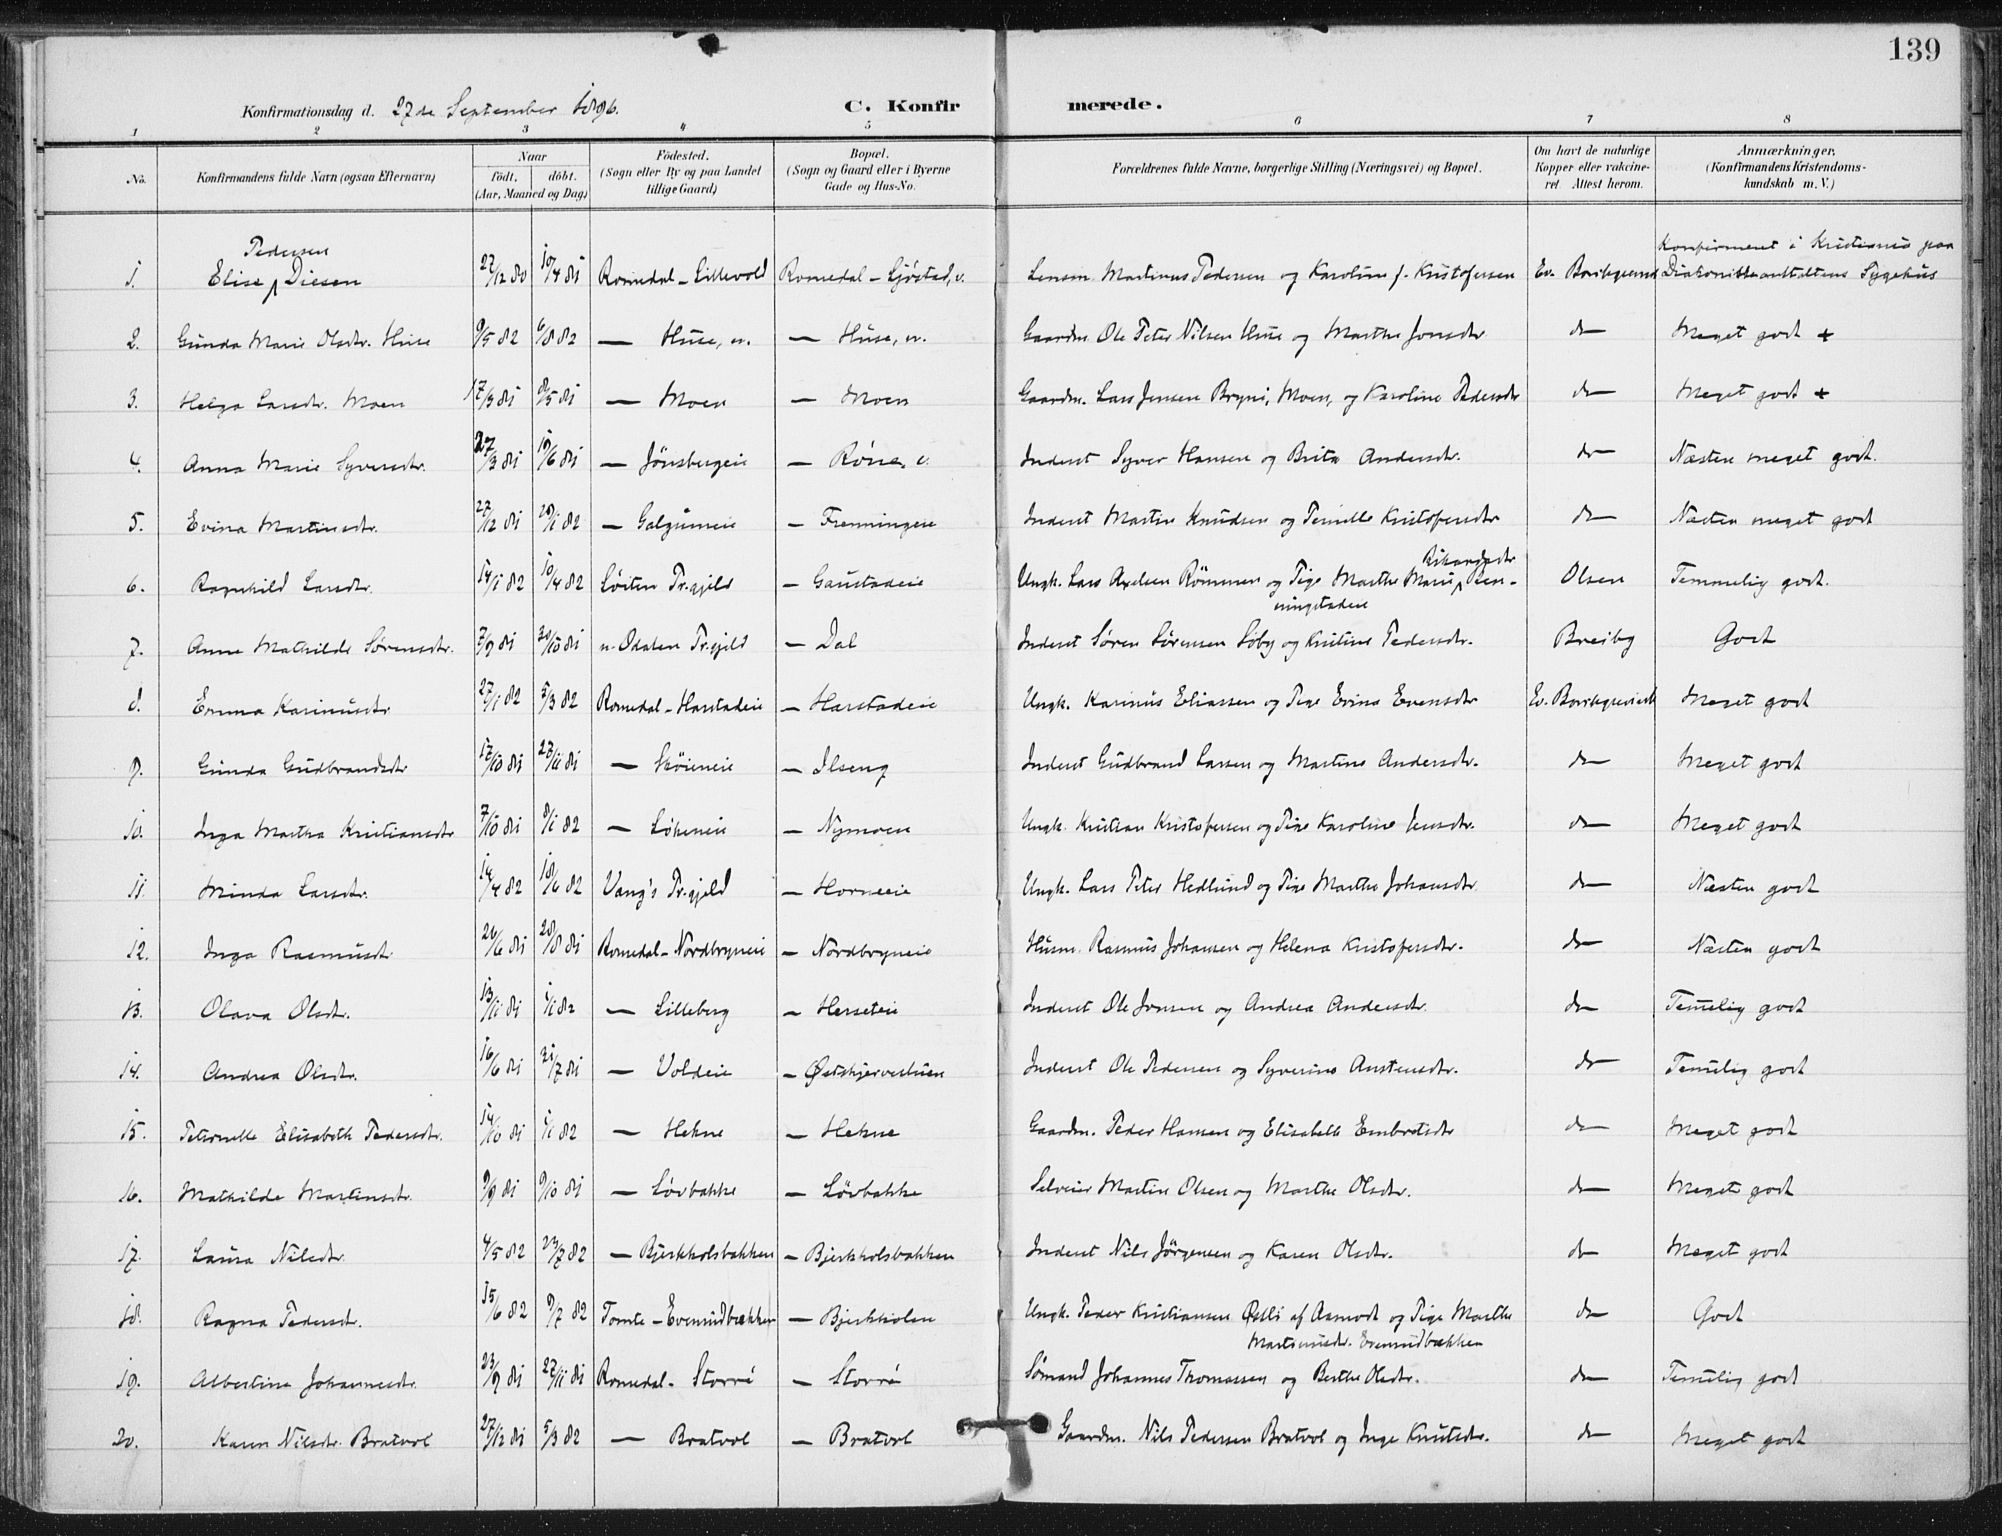 139
Konfirmationsdag d. 27de September 1896. C. Konfirmerede.
1 2 3 4 5 6 7 8
No. Konfirmandens fulde Navn (ogsaa Efternavn) Naar født. døbt. (Aar, Maaned og Dag) Fødested. (Sogn eller By og paa Landet tillige Gaard) Bopæl. (Sogn og Gaard eller i Byerne Gade og Hus-No. Forældrenes fulde Navne, borgerlige Stilling (Næringsvei) og Bopæl. Om havt de naturlige Kopper eller vakcineret. Attest herom. Anmærkninger. (Konfirmandens Kristendomskundskab m. V.)
1. Elise Pedersen Diesen 27/12 80 10/4 81 Romedal - Lillevold Romedal - Sjøstad, v. Lensm. Martinus Pedersen og Karoline f. Kristofersen Ev. Konfirmeret i Kristiania paa Diakonisseanstaltens Sygehus
2. Gunda Marie Olsdtr. Huse 9/5 82 6/8 82 — Huse, n. — Huse, n. Gaardm. Ole Peter Nilsen Huse og Marthe Jonsdtr do Meget godt +
3. Helga Larsdtr. Moen 17/3 81 8/5 81 — Moen — Moen Gaardm. Lars Jensen Bryni, Moen, og Karoline Pedersdtr do Meget godt +
4. Anna Marie Syversdtr. 27/3 81 19/6 81 — Jønsbergeie — Røne, v. Inderst Syver Hansen og Brita Andersdtr. do Næsten meget godt.
5. Evina Martinsdtr. 27/12 81 29/1 82 — Galgumeie — Frenningeie Inderst Martin Knudsen og Pernille Kristofersdtr do Næsten meget godt
6. Ragnhild Larsdtr. 14/1 82 10/4 82 Løiten Pr.gjeld — Gaustadeie Ungk. Lars Axelsen Rømmen og Pige Marthe Marie Rikardsdtr Olsen Temmelig godt.
7. Anne Mathilde Sørensdtr. 7/9 81 30/10 81 n. Odalen Pr.gjeld — Dal Inderst Søren Sørensen Søby og Kristine Pedersdtr. Breiby Godt
8. Emma Karinusdtr 27/1 82 5/3 82 Romedal - Harstadeie — Harstadeie Ungk. Karinus Eliassen og Pige Evina Evensdtr Ev. Meget godt
9. Gunda Gudbrandsdtr 17/10 81 27/11 81 — Skøieneie — Ilseng Inderst Gudbrand Larsen og Martine Andersdtr. do Meget godt
10. Inga Martha Kristiansdtr 7/10 81 8/1 82 — Løkeneie — Nymoen Ungk. Kristian Kristofersen og Pige Karoline Jensdtr. do Meget godt
11. Minda Larsdtr. 14/4 82 18/6 82 Vang's Pr.gjeld — Horneeie Ungk. Lars Peter Hedlund og Pige Marthe Johansdtr. do Næsten godt
12. Inga Rasmusdtr 26/6 81 28/8 81 Romedal - Nordbryneie — Nordbryneie Husm. Rasmus Johansen og Helena Kristofersdtr. do Næsten godt
13. Olava Olsdtr. 13/11 81 1/1 82 — Lilleberg — Herseteie Inderst Ole Jonsen og Andrea Andersdtr. do Temelig godt
14. Andrea Olsdtr. 16/6 81 31/7 81 — Voldeie — Inderst Ole Pedersen og Syverine Austensdtr. do Temelig godt
15. Petronelle Elisabeth Pedersdtr. 14/10 81 1/1 82 — Hekne — Hekne Gaardm. Peder Hansen og Elisabeth Embretsdtr do Meget godt
16. Mathilde Martinsdtr. 9/9 81 9/10 81 — Løvbakke — Løvbakke Selveier Martin Olsen og Marthe Olsdtr. do Meget godt
17. Laura Nilsdtr. 4/5 82 23/7 82 — Bjerkholsbakken — Bjerkholsbakken Inderst Nils Jørgensen og Karen Olsdtr. do Meget godt
18. Ragna Pedersdtr. 15/6 82 9/7 82 Tomte - Evensudbakken — Bjerkholen Ungk. Peder Kristiansen Østli af Aamodt og Pige Marthe do Godt
19. Albertine Johannesdtr. 23/9 81 27/11 81 Romedal - Storrø — Storrø Sømand Johannes Thomassen og Berthe Olsdtr. do Temelig godt
20. Karen Nilsdtr. Bratvol 27/12 81 5/3 82 — Bratvol — Bratvol Gaardm. Nils Pedersen Bratvol og Inge Knutsdtr. do Meget godt